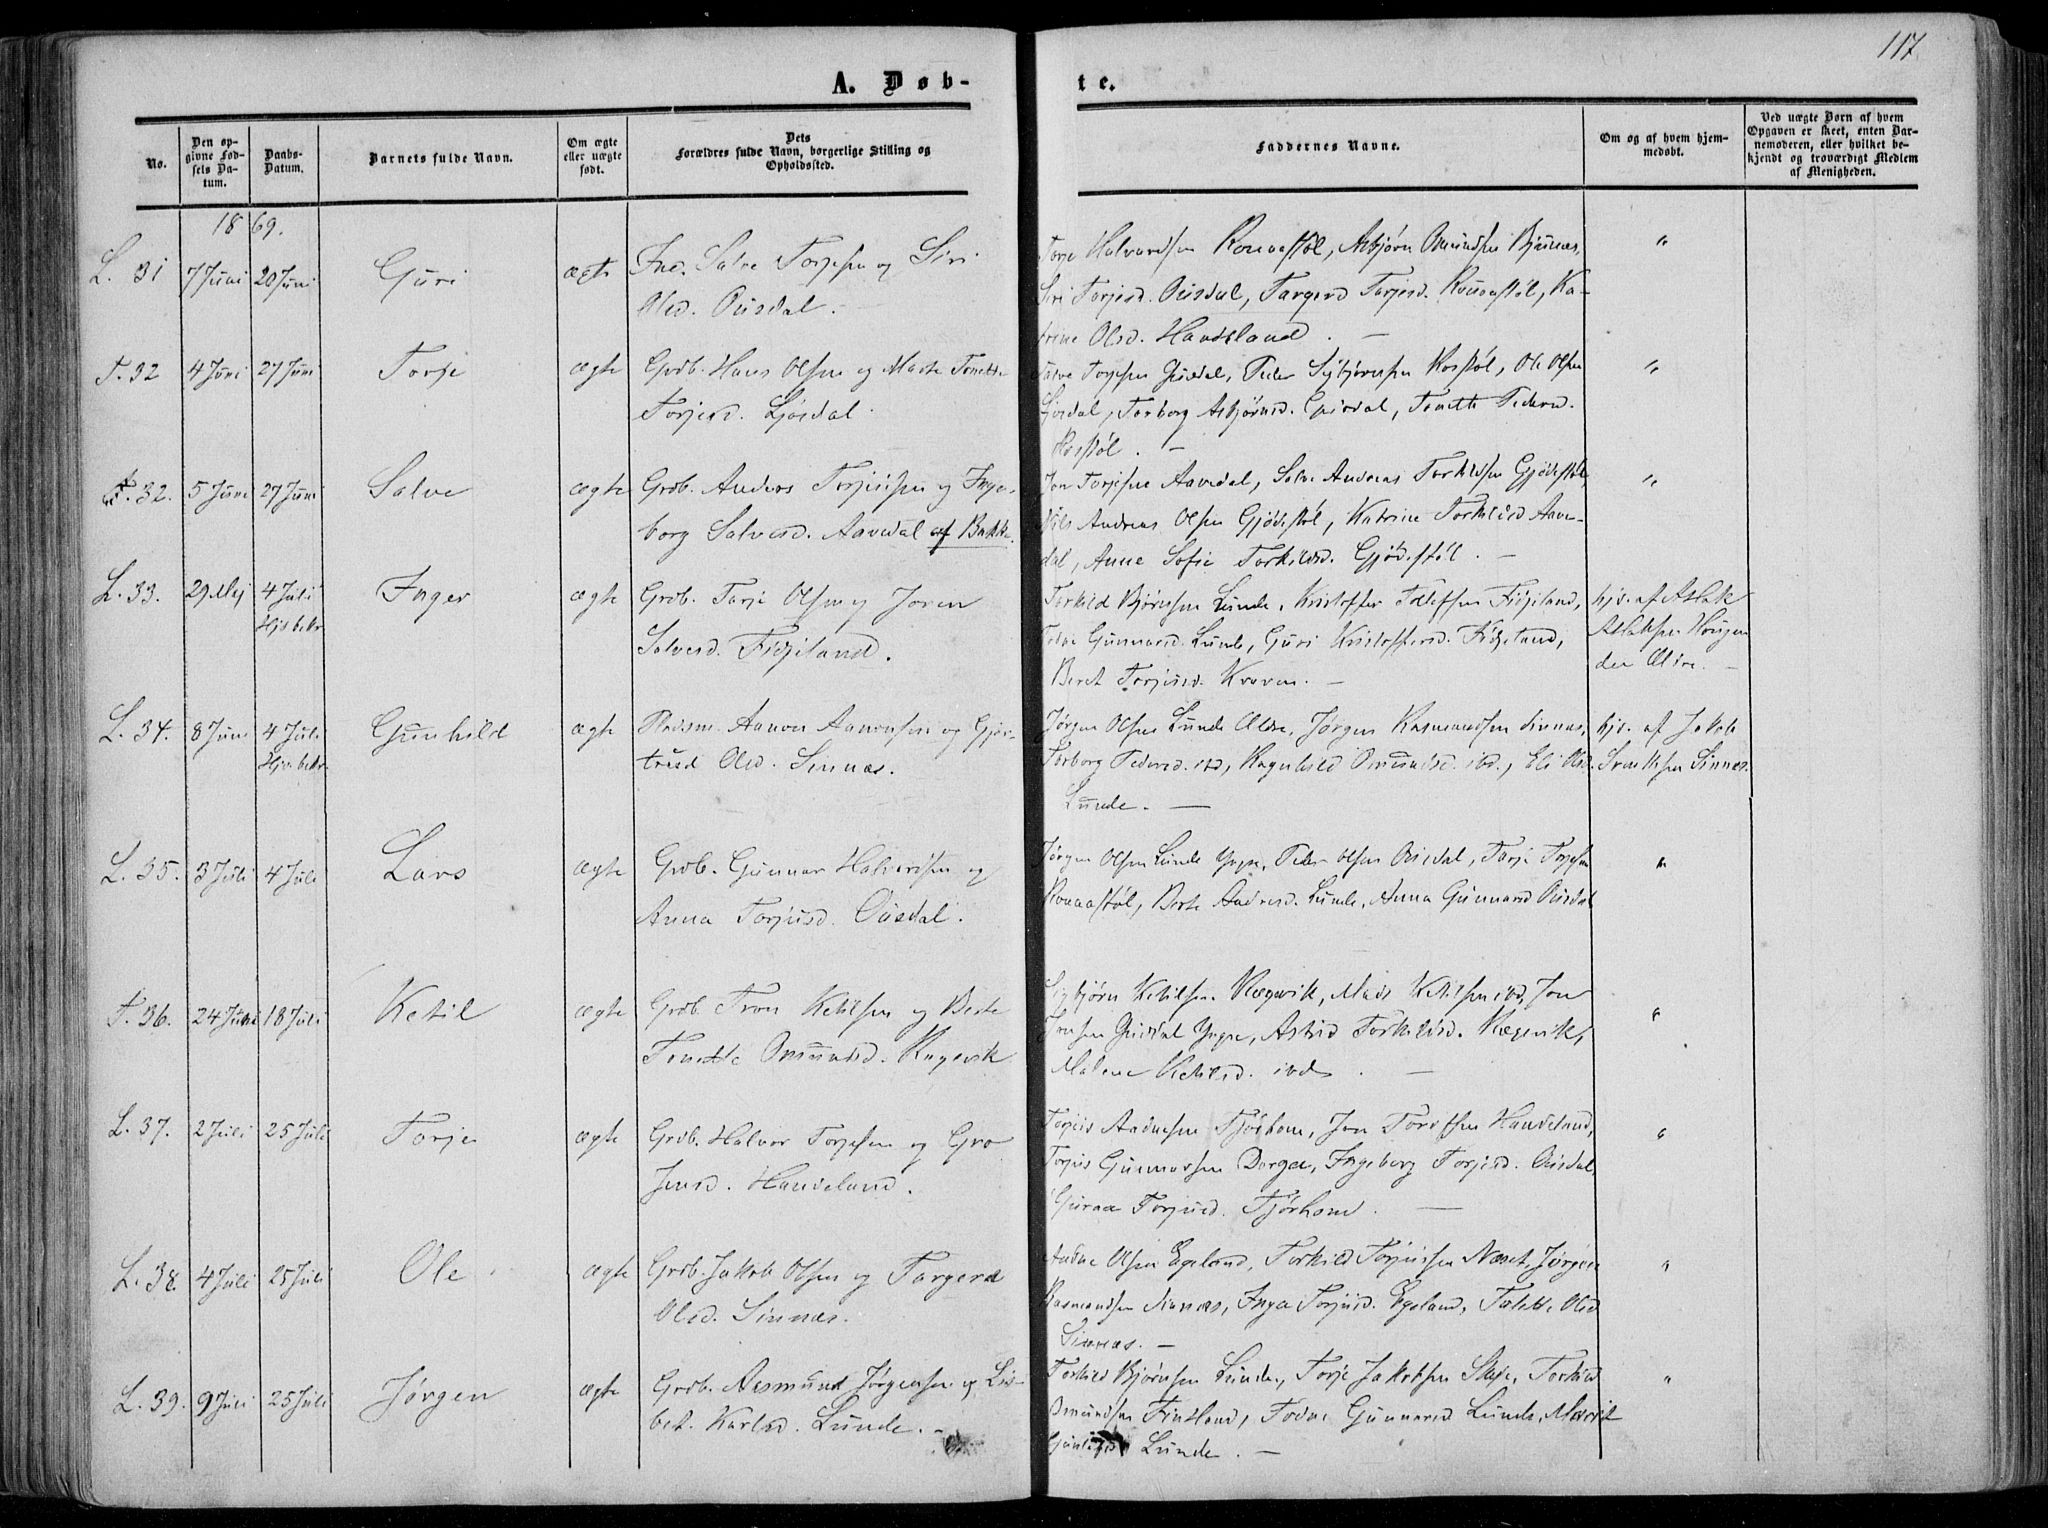 117
A. Døb-
te.
No.
Den op-
givne Fød-
sels Da-
tum.
Daabs-
Datum.
Barnets fulde Navn.
Om ægte
eller uægte
født.
Dets
Forældres fulde Navn, borgerlige Stilling og
Opholdssted.
Faddernes Navne.
Om og af hvem hjem-
medøbt.
Ved uægte Børn af hvem
Opgaven er skeet, enten Bar-
nemoderen, eller hvilket be-
kjendt og troværdigt Medlem
af Menigheden.
1869.
L. 31 7 Juni 20 Juni Guri ægte Ind. Salve Torjesen og Siri
Olsd. Ousdal.
Torje Halvardsen Konaastøl, Asbjørn Omundsen Bjunæs,
Siri Torjesd. Ousdal, Targerd Torjesd. Konaastøl, Ka-
trine Olsd. Handeland. —
"
T. 32 4 Juni 27 Juni Torje ægte Grdb. Hans Olsen og Marte Tonette
Torjesd. Ljosdal.
Salve Torjesen Gusdal, Peder Sigbjørnsen Rosstøl, Ole Olsen
Ljosdal, Torborg Asbjørnsd. Gusdal, Tonette Pedersd.
Rosstøl. —
"
T. 32. 5 Juni 27 Juni Salve ægte Grdb. Anders Torjusen og Inge-
borg Salvesd. Aavedal af Bakke.
Jon Torjesen Aavedal, Salve Andreas Torkildsen Gjødestøl
Nils Andreas Olsen Gjødestøl, Katrine Torkildsd Aave-
dal, Anne Sofie Torkildsd. Gjødestøl. —
"
L. 33. 29 Mej 4 Juli Inger ægte Grdb. Torje Olsen og Joren
Hjd. bekr.
Salvesd. Fidjeland.
Torkild Bjørnsen Lunde, Kristoffer Tollefsen Fidjeland,
Todne Gunnarsd. Lunde, Guri Kristoffersd. Fidjeland,
Beret Torjusd. Kvæven. —
hjd. af Aslak
Aslaksen Hougen
den Ældre. —
L. 34. 8 Juni 4 Juli Gunhild ægte Pladsm. Aanon Aanonsen og Gjer-
Hjd. bekr.
trud Olsd. Sinnæs.
Jørgen Olsen Lunde Ældre, Jørgen Rasmundsen Sinnæs,
Torborg Pedersd. ibd, Ragnhild Omundsd. ibd., Eli Olsd.
Lunde. —
hjd. af Jakob
Sinnæs.
L. 35. 3 Juli 4 Juli Lars ægte Grdb. Gunnar Halvorsen og
Anna Torjusd. Ousdal.
Jørgen Olsen Lunde Yngre, Peder Olsen Ousdal, Torje Torjesen
Konaastøl, Berte Andersd. Lunde, Anna Gunnarsd Ousdal
"
T. 36. 24 Juni 18 Juli Ketil ægte Grdb. Tron Ketilsen og Berte
Tonette Omundsd. Rægevik
Sigbjørn Ketilsen Rægevik, Mads Ketilsen ibd, Jon
Gusdal Yngre, Astrid Torkildsd. Rægevik,
Malene Ketilsd. ibd. —
"
L. 37. 2 Juli 25 Juli Torje ægte Grdb. Halvor Torjesen og Gro
Jensd. Handeland.
Torjus Aadnesen Tjørhom, Jon Handeland,
Torjus Gunnarsen Berge, Ingeborg Torjesd. Ousdal
Guraa Torjusd. Tjørhom. —
"
L. 38. 4 Juli 25 Juli Ole ægte Grdb. Jakob Olsen og Targerd
Olsd. Sinnæs.
Aadne Olsen Egeland, Torkild Torjussen Næset, Jørgen
Rasmundsen Sinnæs, Inga Torjusd. Egeland, Tolette Olsd
Sinnæs. —
"
L. 39. 9 Juli 25 Juli Jørgen ægte Grdb. Aasmund Jørgensen og Lis-
bet Karlsd. Lunde. —
Torkild Bjørnsen Lunde, Torje Jakobsen Skeje, Torkild
Omundsen Finsland, Todne Gunnarsd Lunde, Marit
Lunde. —
"